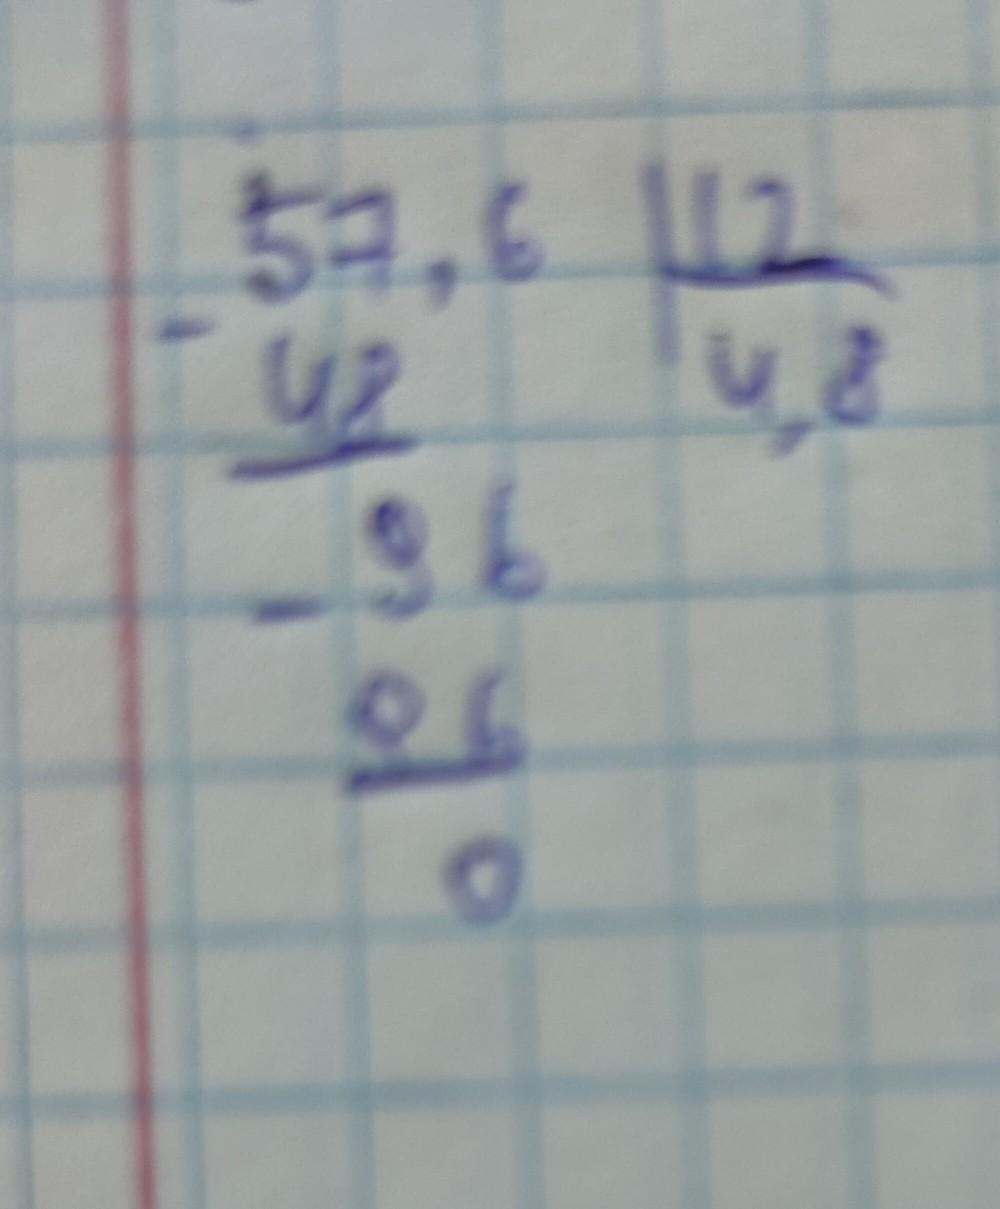 57,6 | 12
- 48 | 4,8
- 96
06
0